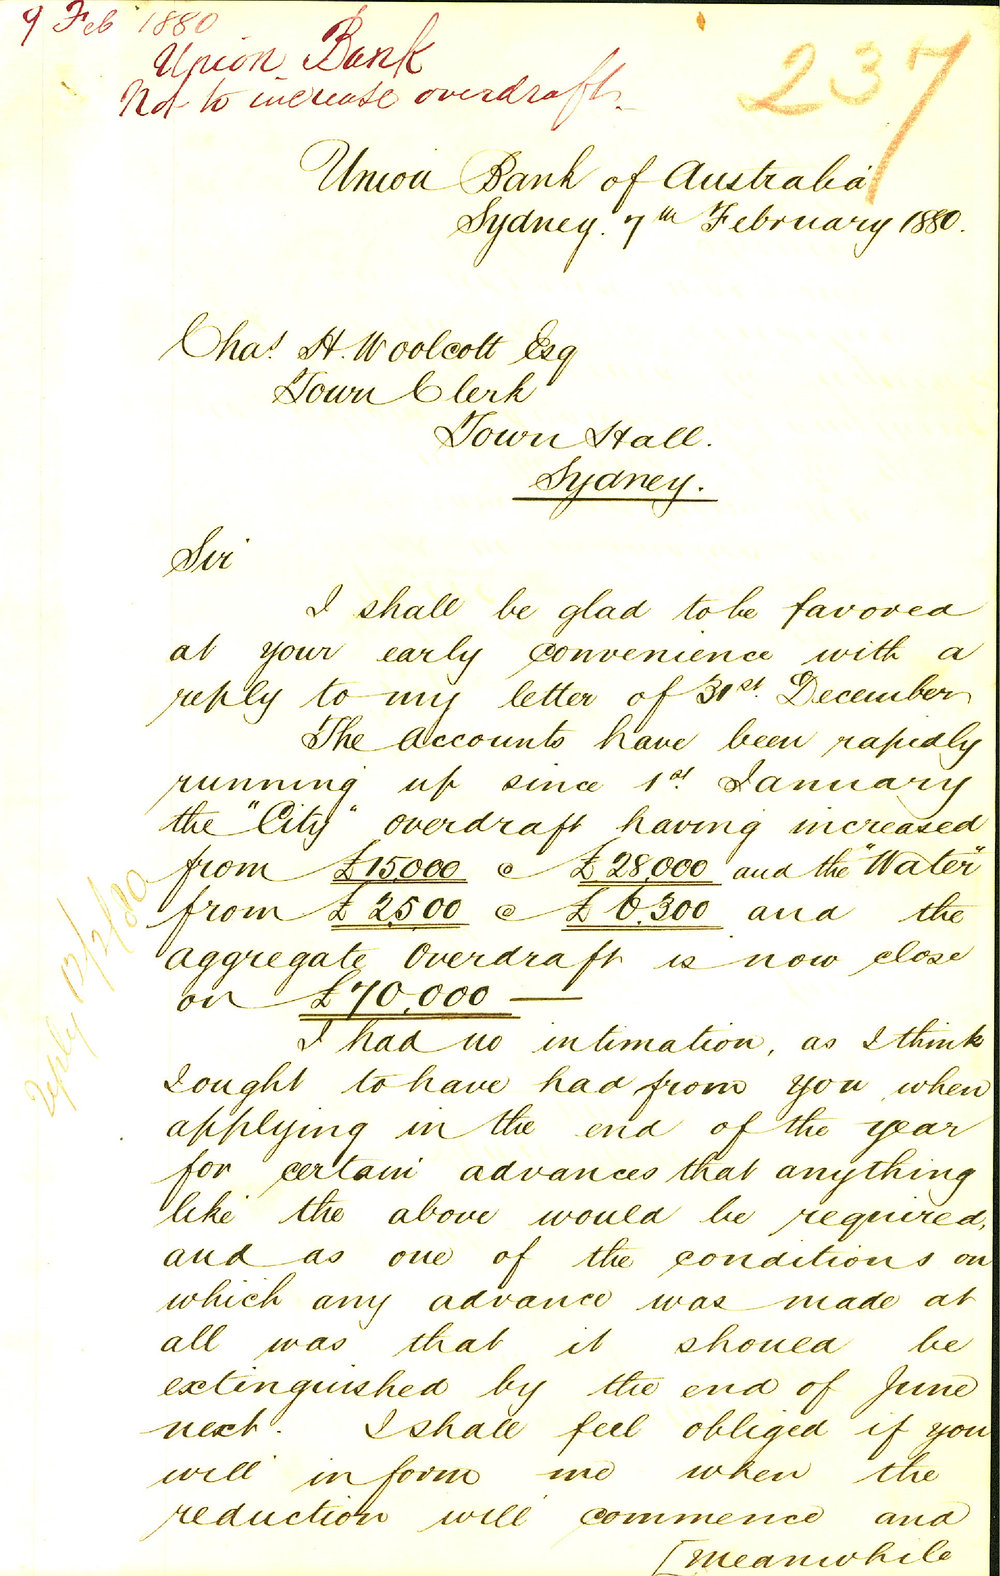 9 Feb 1880
Union Bank
Not to increase overdraft.
237
Union Bank of Australia
Sydney. 7th February 1880.
Chas. H. Woolcott Esq
Town Clerk
Town Hall.
Sydney.
Sir
I shall be glad to be favored
at your early convenience with a
reply to my letter of 31st. December
The Accounts have been rapidly
running up since 1st. January
the "City" overdraft having increased
from £15000 @ £28,000 and the "Water"
from £2500 @ £6,300 and the
aggregate Overdraft is now close
on £70,000 —
I had no intimation, as I think
I ought to have had from you when
applying in the end of the year
for certain advances that anything
like the above would be required,
and as one of the conditions on
which any advance was made at
all was that it should be
extinguished by the end of June
next. I shall feel obliged if you
will inform me when the
reduction will commence and
[Meanwhile
reply 12/2/80